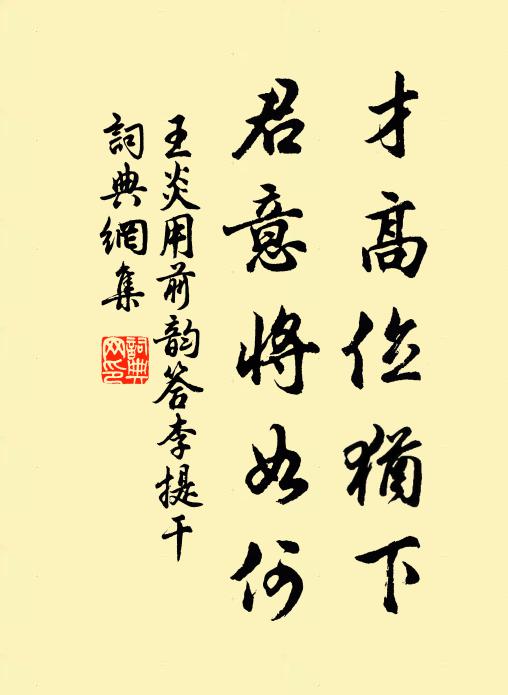 才高位猶下
君意將如何
王炎用前韵答李提干
詞典網集
詞典網印